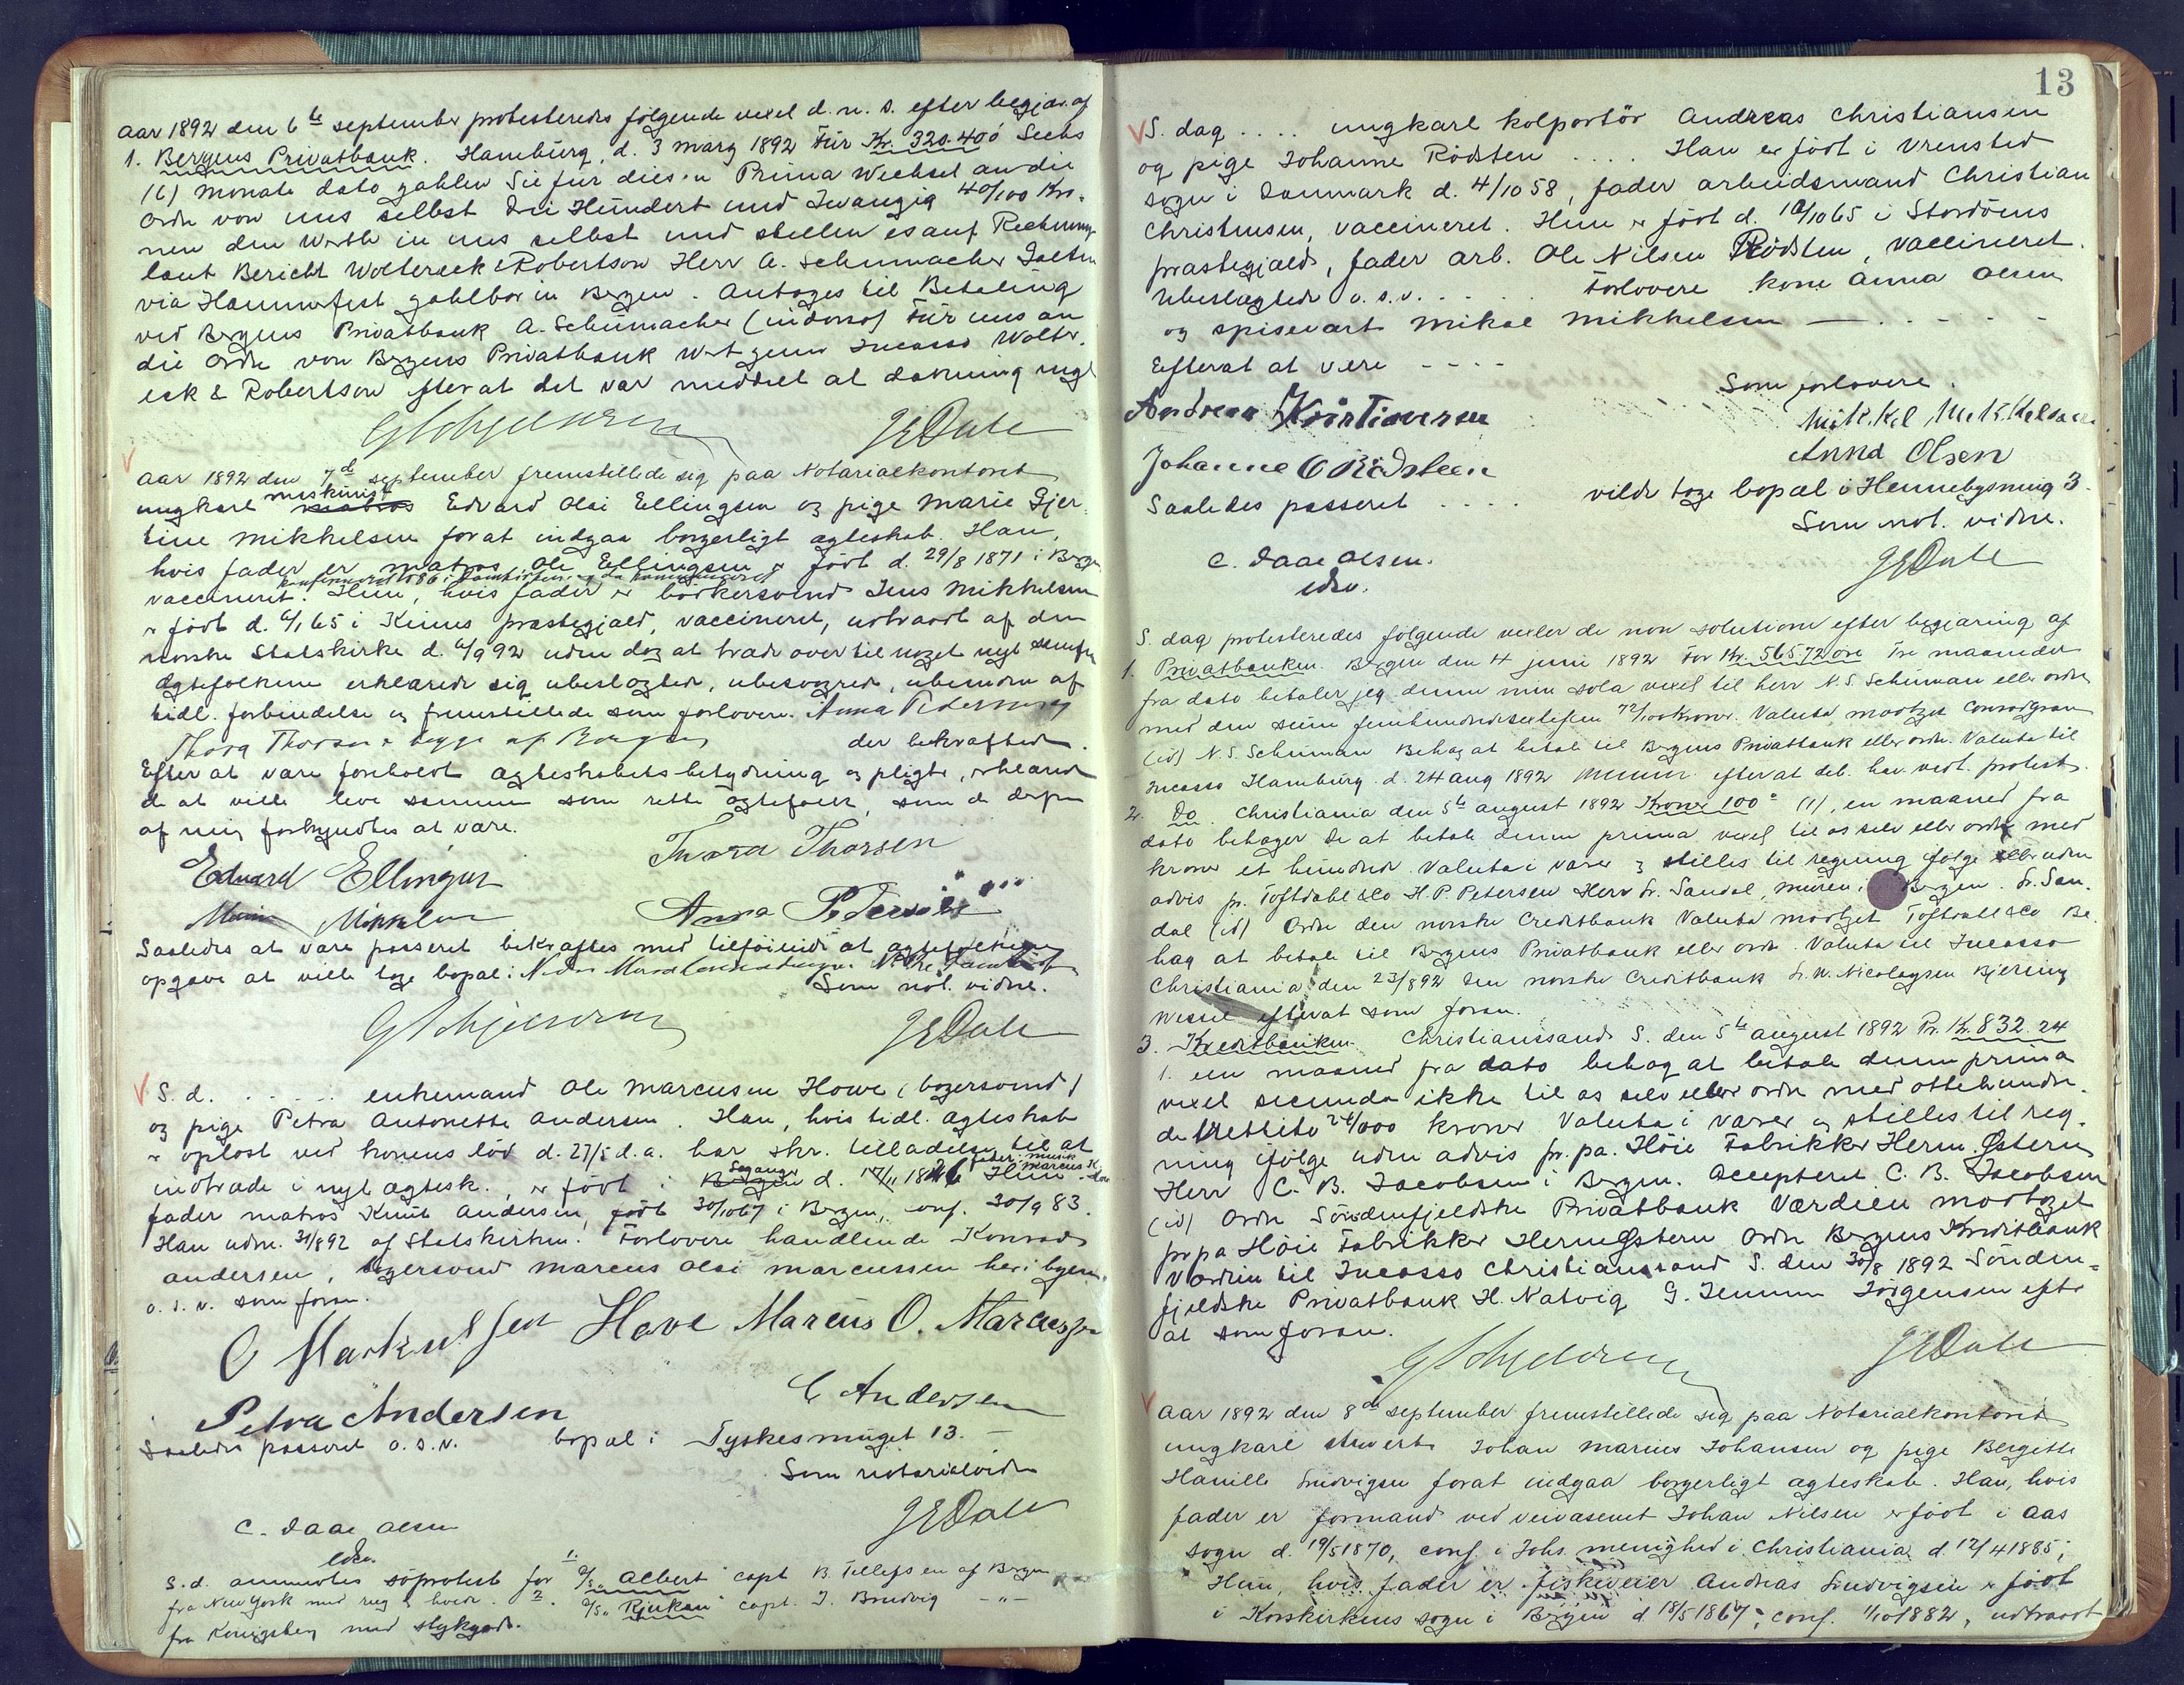 Aar 1892 den 6te september protesteredes følgende vexel d. n. s. efter begjær. af
1. Bergens Privatbank. Hamburg, d. 3 marz 1892 Für Kr. 320.40 ö Sechs
(6) monate dato zahlen Sie für diesen Prima Wechsel an die
Ordre von uns selbst Drei Hundert und Zwanzig 40/100 Kro-
nen den Werth in uns selbst und stellen es auf Rechnung
laut Bericht Woltereck & Robertson Herr A. Schumacher
via Hammerfest zahlbar in Bergen. Antages til Betaling
ved Bergens Privatbank A. Schumacher (indorso) Für uns an
die Ordre von Bergens Privatbank Wert zum Incasso Wolter-
eck & Robertson efterat det var meddelt at dækning mgl
JEDale
Aar 1892 den 7de september fremstillede sig paa Notarialkontoret
maskinist
ungkarl matros Edvard Olai Ellingsen og pige Marie Gjer-
tine Mikkelsen forat indgaa borgerligt ægteskab. Han,
hvis fader er matros Ole Ellingsen er født d. 29/8 1871 i Bergen
konfirmeret 1886 i Domkirken og da kommuniceret
vaccineret. Hun, hvis fader er bødkersvend Jens Mikkelsen
er født d. 6/1 65 i Kinns præstegjæld, vaccineret, udtraadt af den
norske Statskirke d. 6/9 92 uden dog at træde over til noget nyt samfn
Ægtefolkene erklærede sig ubeslægtede, ubesvogrede, ubundne af
tidl. forbindelse og fremstillede som forlovere. Anna Pedersen og
Thora Thorsen begge af Bergen der bekræftede.
Efter at være foreholdt ægteskabets betydning og pligter, erklærede
de at ville leve sammen som rette ægtefolk, som de derfor
af mig forkyndtes at være.
Edvard Ellingsen Thora Thorsen
Marie Mikkelsen Anna Pedersen
Saaledes at være passeret bekræftes med tilføiende at ægtefolkene
opgave at ville tage bopæl i Nedre
Som not. vidne.
JEDale
S. d. ..... enkemand Ole Marcussen Howe (bogersvend)
og pige Petra Antonette Andersen. Han, hvis tidl. ægteskab
er opløst ved konens død d. 27/5 d. a. har skr. tilladelse til at
fader: musik
Sogange Marcus K.
indtræde i nyt ægtesk., er født i Bergen d. 17/11 1826 Hun
fader matros Knut Andersen, født 30/10 67 i Bergen, conf. 30/9 83.
Han udm. 31/8 92 af Statskirken. Forlovere handlende Konrad
Andersen, bogersvend Marcus Olai Marcussen her i byen,
o. s. v. som foran.
O Markussen Hove Marcus O. Marcussen
C Andersen
Petra Andersen
Saaledes passeret o. s. v. bopæl i Tyskesmuget 13. —
Som notarialvidne
JEDale
C. Daae Olsen
edsv.
S. d. anmeldtes søprotest for 1. D/S "Albert" capt B. Tellefsen af Bergen
fra New York med rug & hvede. 2. D/S "Rjukan" capt. J. Brudvig -"-
fra Königsberg med stykgods.
13
S. dag .... ungkarl kolportør Andreas Christiansen
og pige Johanne Rödsten .... Han er født i Vrensted
sogn i Danmark d. 4/10 58, fader arbeidsmand Christian
Christensen, vaccineret. Hun er født d. 10/10 65 i Stordöens
præstegjæld, fader arb. Ole Nilsen Rödsten, vaccineret.
Ubeslægtede o. s. v. .... Forlovere kone Anna Olsen
og spisevært Mikal Mikkelsen — . - - -
Efterat at være - - - -
Som forlovere.
Andreas Kristiansen Mikkel Mikkelsen
Johanne O Rödsteen Anna Olsen
Saaledes passeret .... vilde tage bopæl i Hennebysmug 3.
Som not. vidne.
C. Daae Olsen. JEDale
edsv.
S. dag protesteredes følgende vexler de non solutione efter begjæring af
1. Privatbanken. Bergen den 4 juni 1892 For Kr. 565,72 øre Tre maaneder
fra dato betaler jeg denne min sola vexel til herr N. S. Schuman eller ordre
med den sum femhundredesextifem 72/100 Kroner. Valuta modtaget Conrad Gran
(id) N. S. Schuman Behag at betale til Bergens Privatbank eller ordre. Valuta til
Incasso Hamburg d. 24 aug 1892 efterat deb. hav. vedt. protest.
2. Do. Christiania den 5te august 1892 Kroner 100" (1), en maaned fra
dato behager De at betale denne prima vexel til os selv eller ordre med
kroner et hundrede. Valuta i varer og stilles til regning ifølge eller uden
advis pr. Toftdahl & Co H. P. Petersen Herr Fr. Sandal, Muren, Bergen. Fr. San-
dal (id) Ordre den norske Creditbank Valuta modtaget Toftdahl & Co Be-
hag at betale til Bergens Privatbank eller ordre. Valuta til Incasso
Christiania den 23/8 92 Den norske Creditbank Fr. W. Nicolaysen Bjering
Wessel efterat som foran.
3. Kreditbanken. Christianssand S. den 5te august 1892 Pr. Kr. 832.24
1. een maaned fra dato behag at betale denne prima
vexel secunda ikke til os selv eller ordre med ottehundre-
detrettito 24/000 kroner Valuta i varer og stilles til reg-
ning ifølge uden advis pr. pa. Höie Fabrikker Herm. Østern
Herr C. B. Jacobsen i Bergen. Accepteret C. B. Jacobsen
(id) Ordre Söndenfjeldske Privatbank Værdien modtaget
pr pa Höie Fabrikker Herm Østern Ordre Bergens Kreditbank
Værdien til Incasso Christianssand S. den 30/8 1892 Sönden-
fjeldske Privatbank H. Natvig G. Jörgensen efter
at som foran.
JEDale
Aar 1892 den 8de september fremstillede sig paa Notarialkontoret
ungkarl stuert Johan Marius Johansen og pige Bergitte
Hanille Ludvigsen forat indgaa borgerligt ægteskab. Han, hvis
fader er formand ved veivæsenet Johan Nilsen er født i Aas
sogn d. 19/5 1870, conf. i Johs. menighed i Christiania d. 12/4 1885;
Hun, hvis fader er fiskeveier Andreas Ludvigsen er født
i Korskirkens sogn i Bergen d. 18/5 1867, conf. 1/10 1882, udtraadt